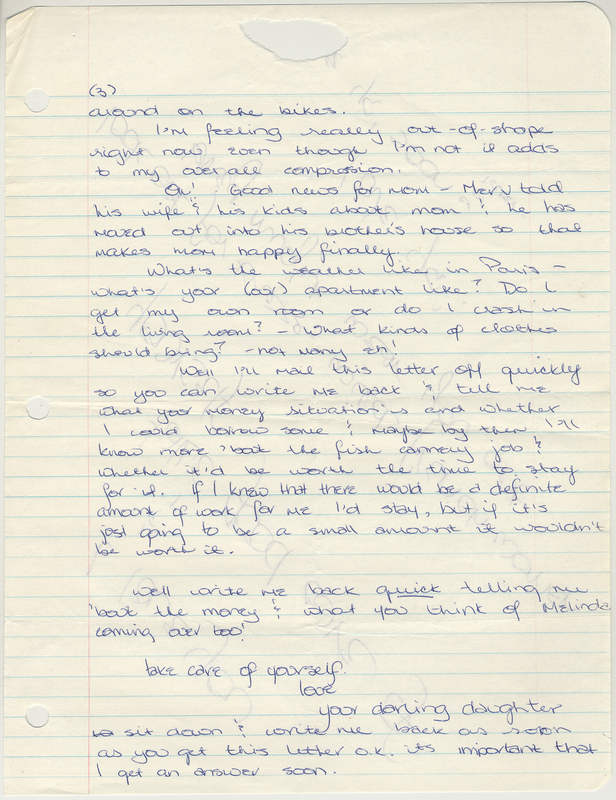 (3)
around on the bikes.
I'm feeling really out-of-shape
right now even though I'm not it adds
to my over all compression.
Oh! Good news for mom - Merv told
his wife & his kids about mom & he has
moved out into his brother's house so that
makes mom happy finally.
What's the weather like in Paris -
what's your (our) apartment like? Do I
get my own room or do I crash in
the living room? - What kinds of clothes
should bring? - not many eh!
Well I'll mail this letter off quickly
so you can write me back & tell me
what your money situation is and whether
I could borrow some & maybe by then I'll
know more 'bout the fish cannery job &
whether it'd be worth the time to stay
for it. If I knew that there would be a definite
amount of work for me I'd stay, but if it's
just going to be a small amount it wouldn't
be worth it.
Well write me back quick telling me
'bout the money & what you think of Melinda
coming over too!
take care of yourself.
love
your darling daughter
sit down & write me back as soon
as you get this letter o.k. its important that
I get an answer soon.